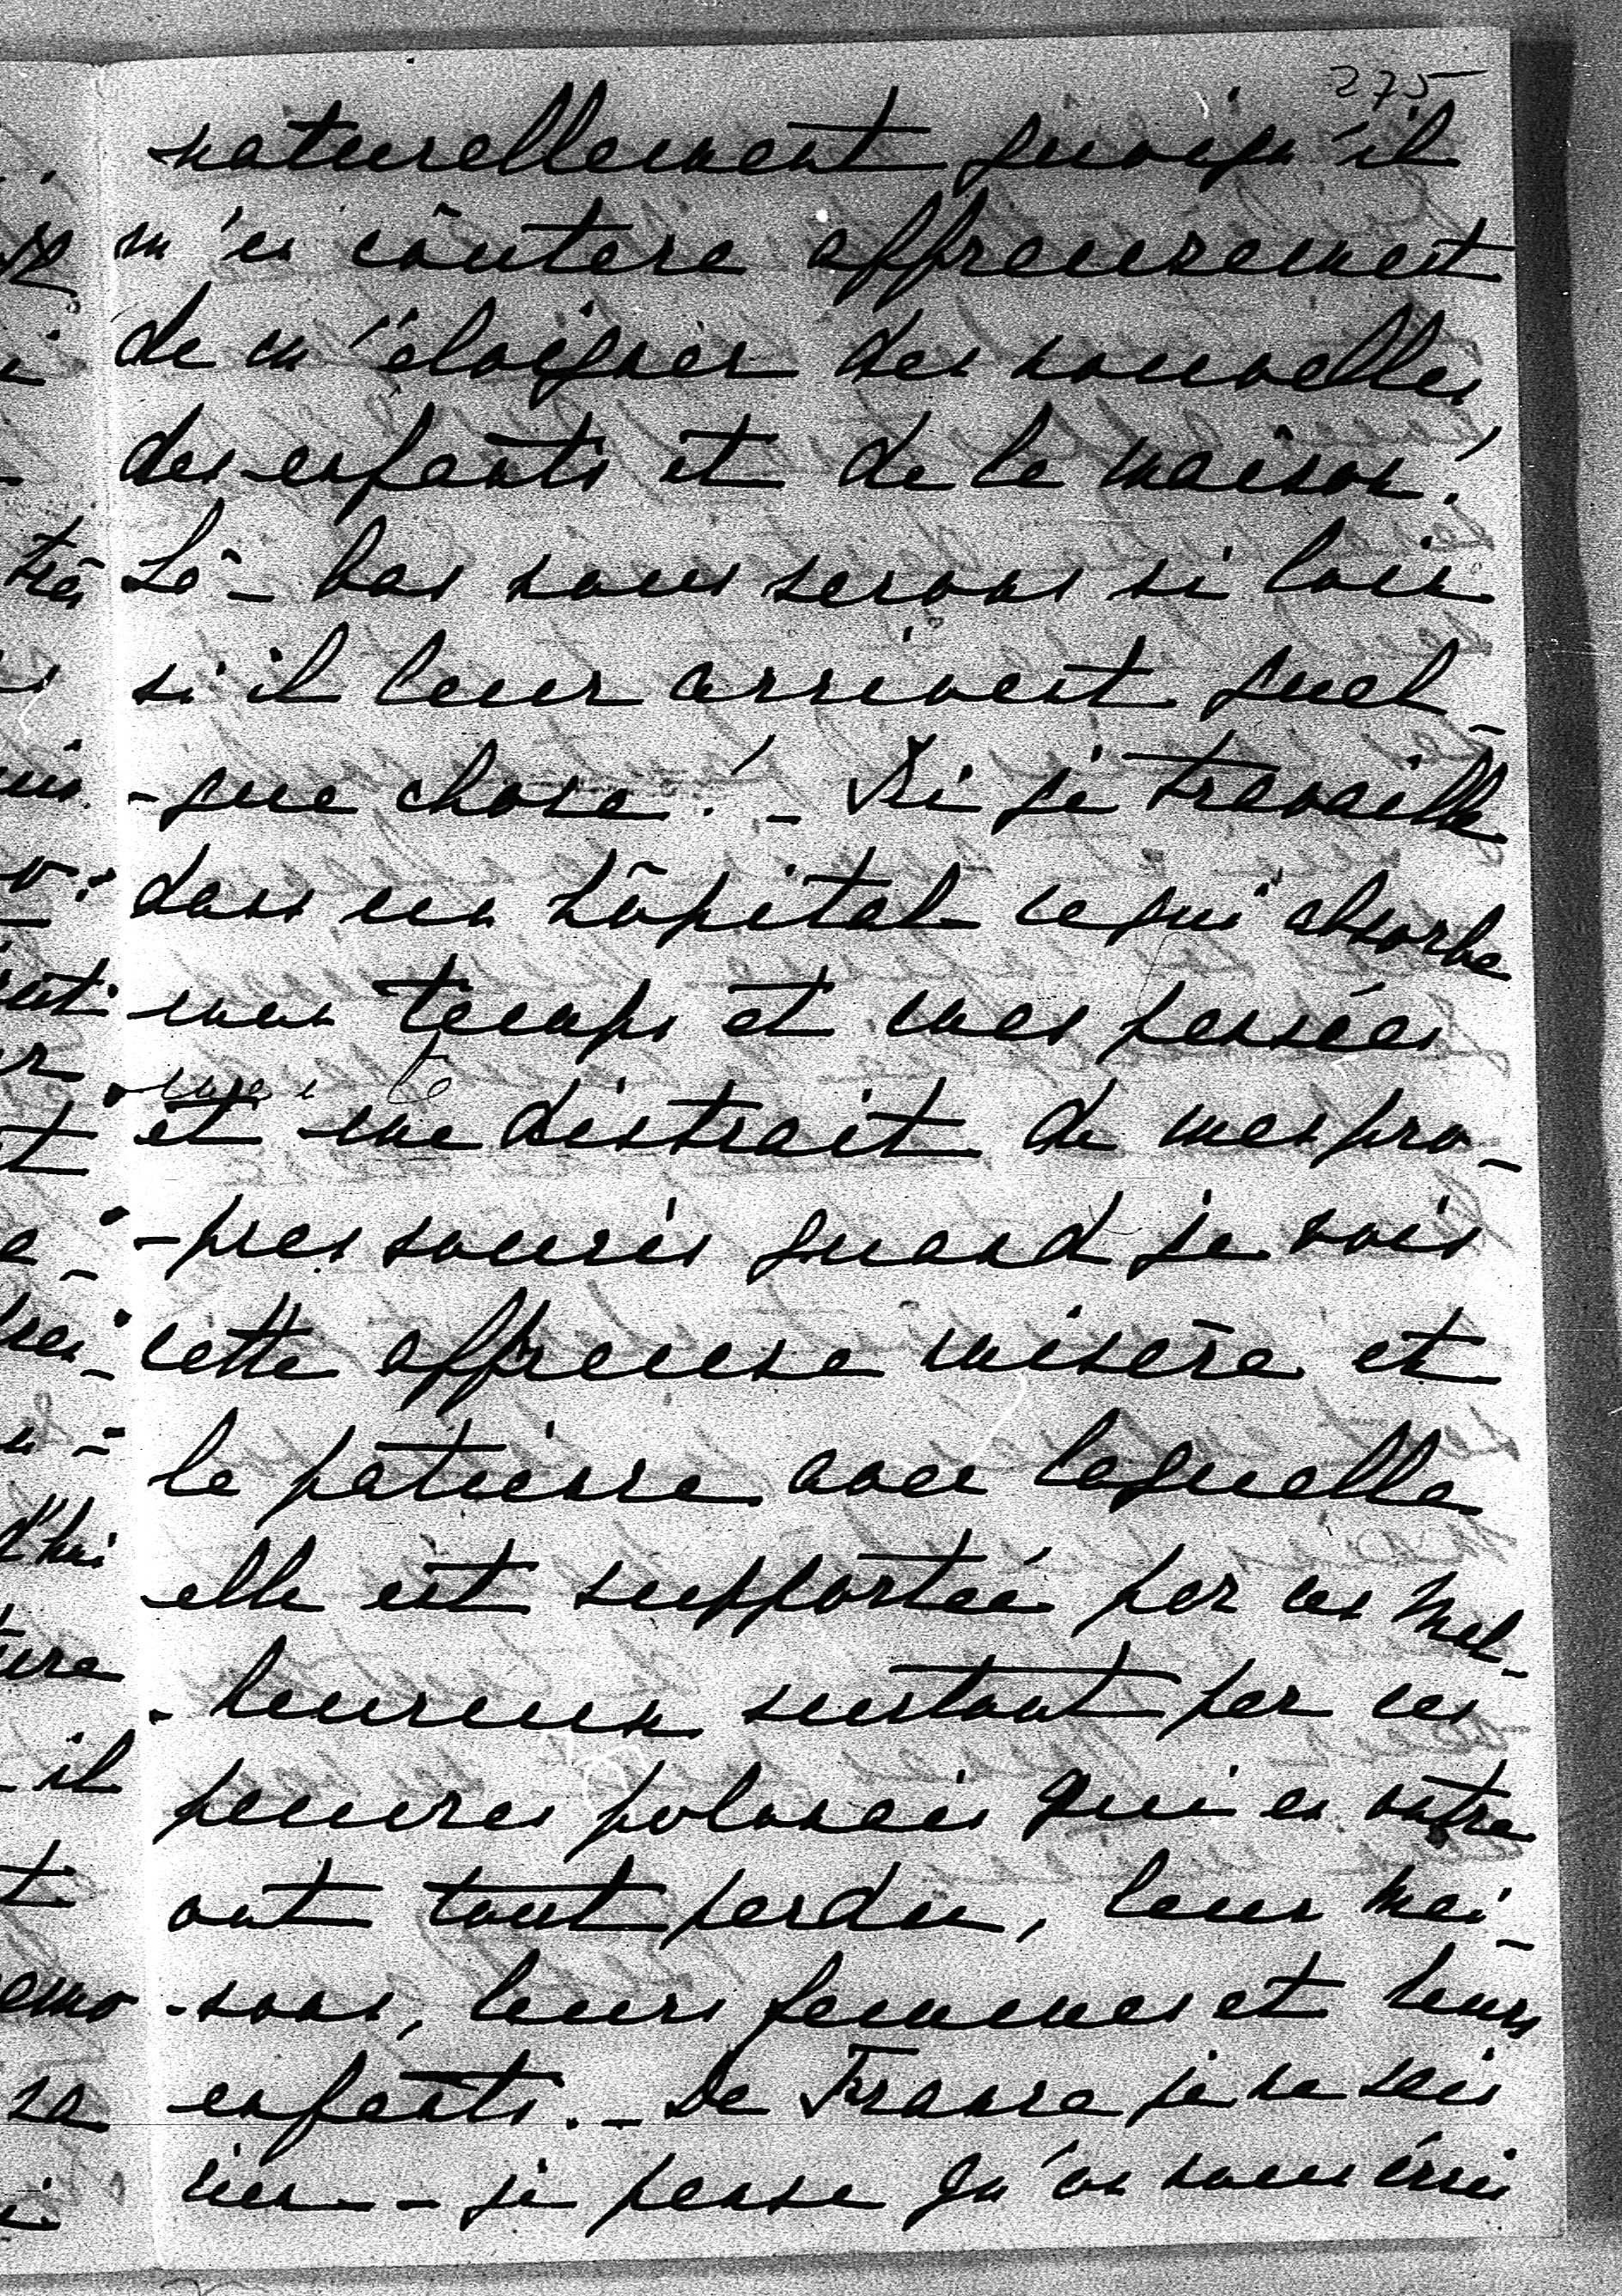 275
naturellement quoiqu'il
m'en coûtera affreusement
de m'éloigner des nouvelles
des enfants et de la maison!
Là-bas nous serons si loin
si il leur arrivent quel-
-que chose! - Ici je travaille
dans un hôpital ce qui absorbe
mon temps et mes pensées
et me distrait de mes pro-
-pres soucis quand je vois
cette affreuse misère et
la patience avec laquelle
elle est supportée par ces mal-
-heureux surtout par ces
pauvres polonais qui en outre
ont tout perdu, leurs mai-
-sons, leurs femmes et leurs
enfants. - De France je ne sais
rien - je pense qu'on nous écrit